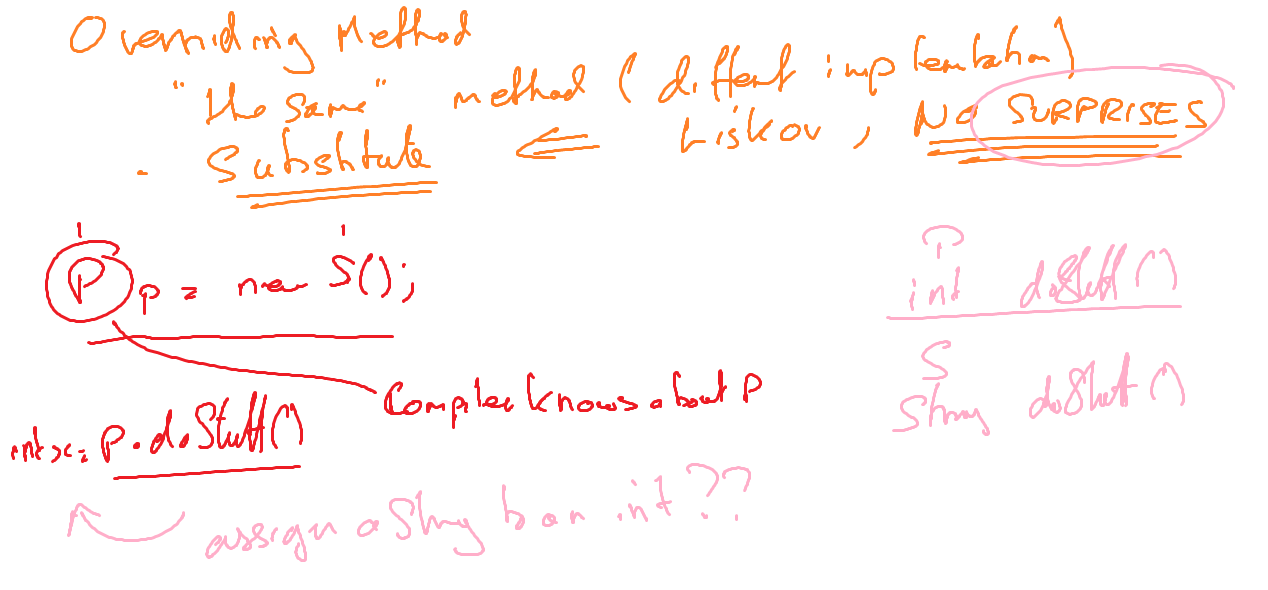 Overriding Method
"the same" method (different implementation)
. Substitute ⇐ Liskov, NO SURPRISES
P p = new S();
Compiler knows about P
int x = p.doStuff()
assign a String to an int ??
P
int doStuff()
S
String doStuff()